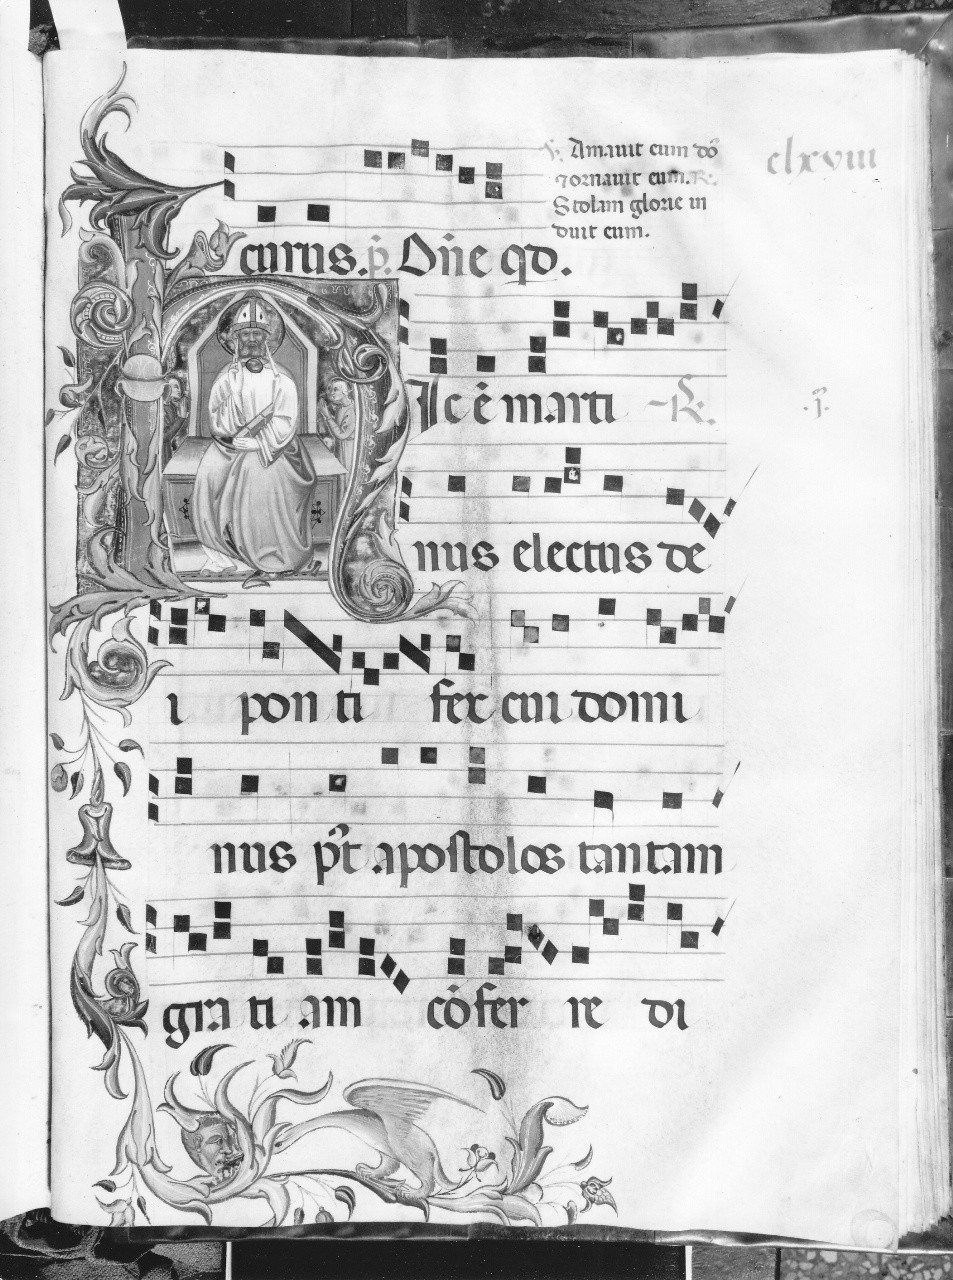 ℣. Amauit eum dō
clxviii
⁊ ornauit eum. ℟.
Stolam glorie in
duit eum.
curus. p̄. Dn̄e qd.
Ic ē marti ℟. .i.
nus electus de
i pon ti fex cui domi
nus p̄t apostolos tantam
gra ti am cōfer re di